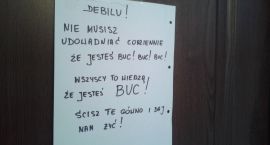 DEBILU!
NIE MUSISZ
UDOWADNIAĆ CODZIENNIE
ŻE JESTEŚ BUC! BUC! BUC!
WSZYSCY TO WIEDZĄ
ŻE JESTEŚ BUC!
ŚCISZ TE GÓWNO I DAJ
NAM ŻYĆ!